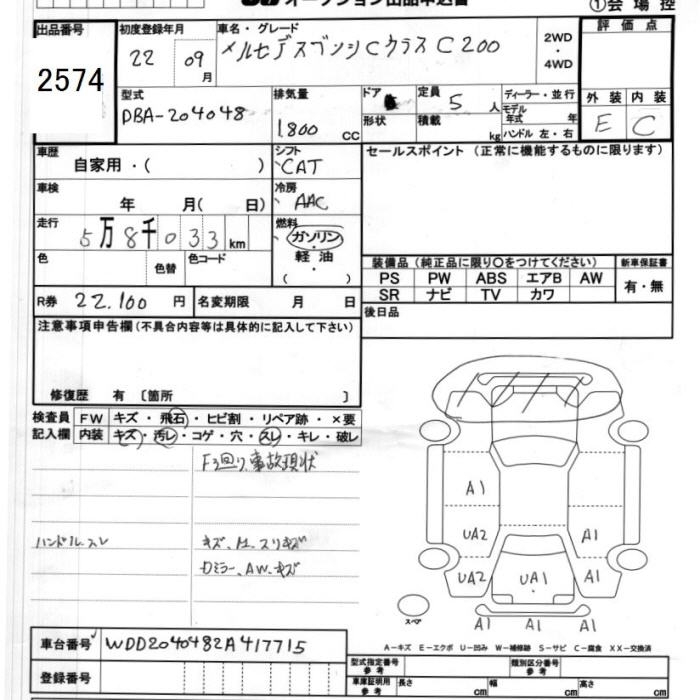 オークション出品申込書
①会場控
出品番号
2574
初度登録年月
22
09
月
車名・グレード
メルセデスベンツ Cクラス C200
2WD
・
4WD
評価点
外装 内装
E C
型式
DBA-204048
排気量
1.800 cc
ドア
形状
定員 5 人
積載 kg
ディーラー・並行
モデル年式 年
ハンドル 左・右
車歴
自家用・( )
シフト
CAT
セールスポイント (正常に機能するものに限ります)
車検
年 月( 日)
冷房
AAC
走行
5万8千033 km
燃料
ガソリン
軽油
( )
色
色替
色コード
装備品(純正品に限り○をつけてください)
新車保証書
PS PW ABS エアB AW
SR ナビ TV カワ
有・無
R券 22.100 円
名変期限 月 日
後日品
注意事項申告欄(不具合内容等は具体的に記入して下さい)
修復歴 有 〔箇所 〕
検査員
記入欄
FW キズ・飛石・ヒビ割・リペア跡・×要
内装 キズ・汚レ・コゲ・穴・スレ・キレ・破レ
F3回り、事故現状
ハンドルスレ
キズ、凹、スリキズ
ロミラー、AW、キズ
A1
UA2
A1
UA2
UA1
A1
スペア
A1
A1
A1
車台番号
WDD2040482A417715
A-キズ E-エクボ U-凹み W-補修跡 S-サビ C-腐食 XX-交換済
登録番号
型式指定番号
参考
類別区分番号
参考
車庫証明用
参考
長さ cm
幅 cm
高さ cm